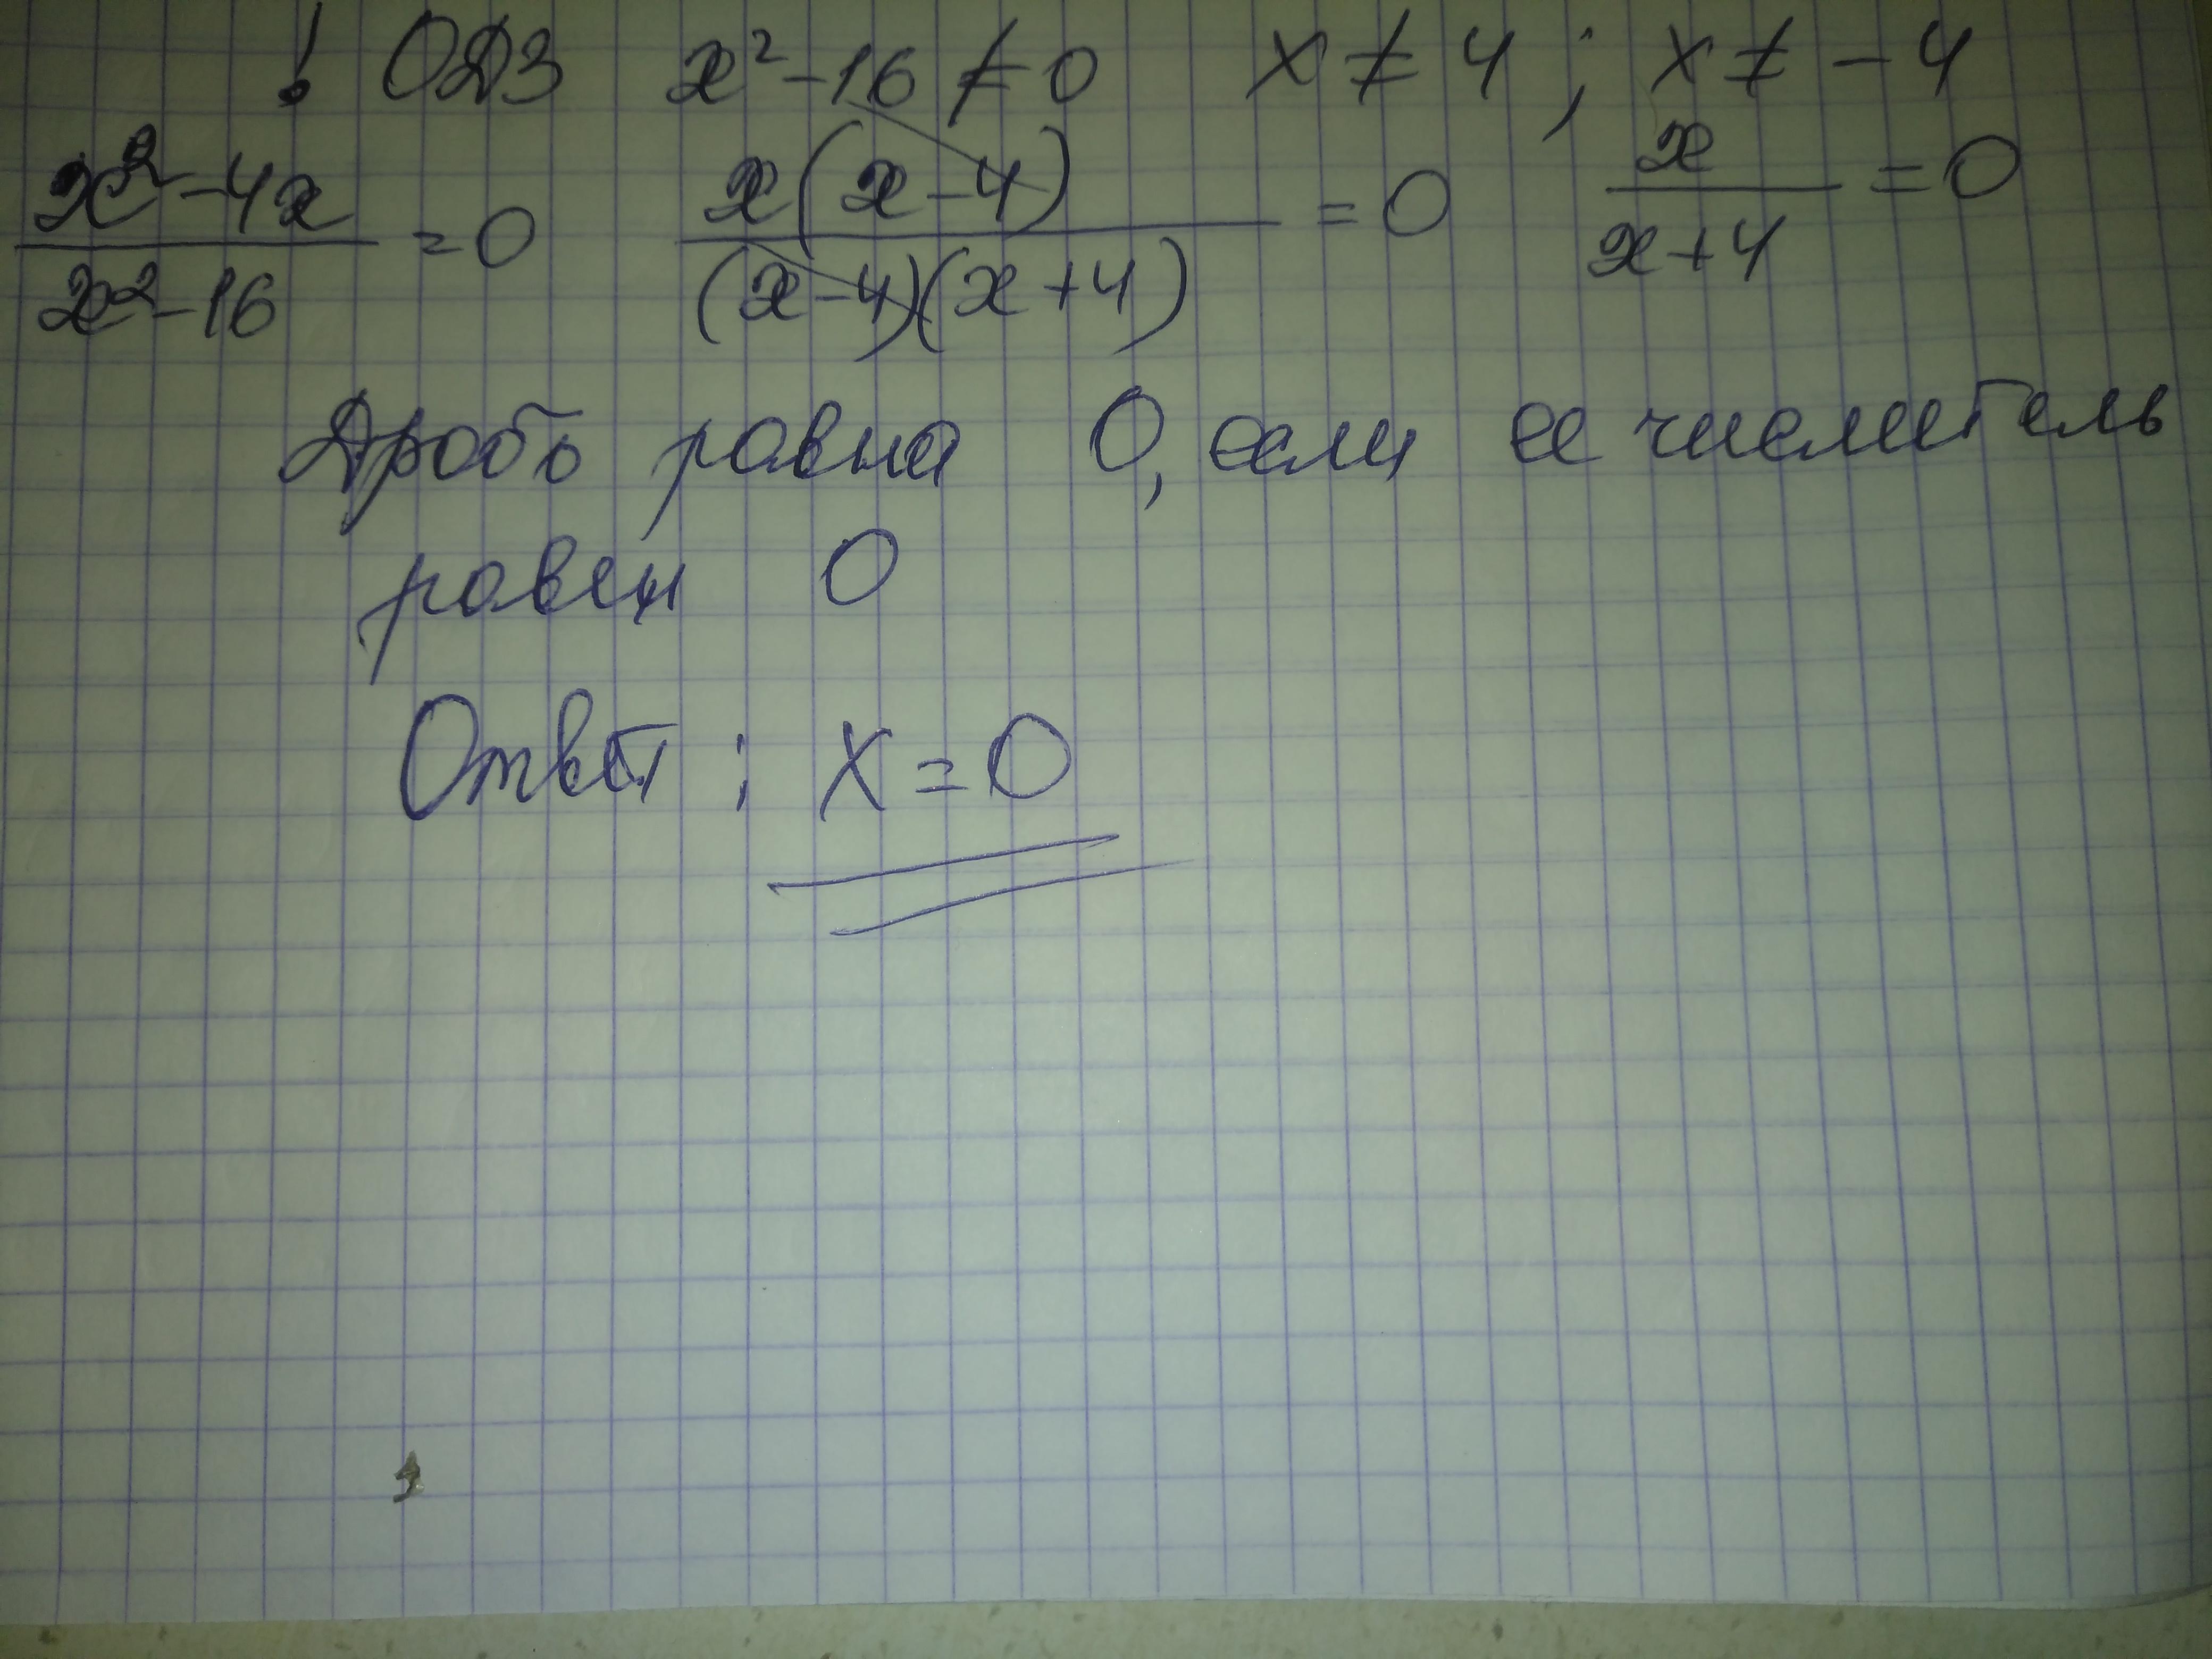 ! ОДЗ x² - 16 ≠ 0 x ≠ 4 ; x ≠ - 4
(x² - 4x)/(x² - 16) = 0 x(x - 4)/((x - 4)(x + 4)) = 0 x/(x + 4) = 0
Дробь равна 0, если ее числитель
равен 0
Ответ : x = 0